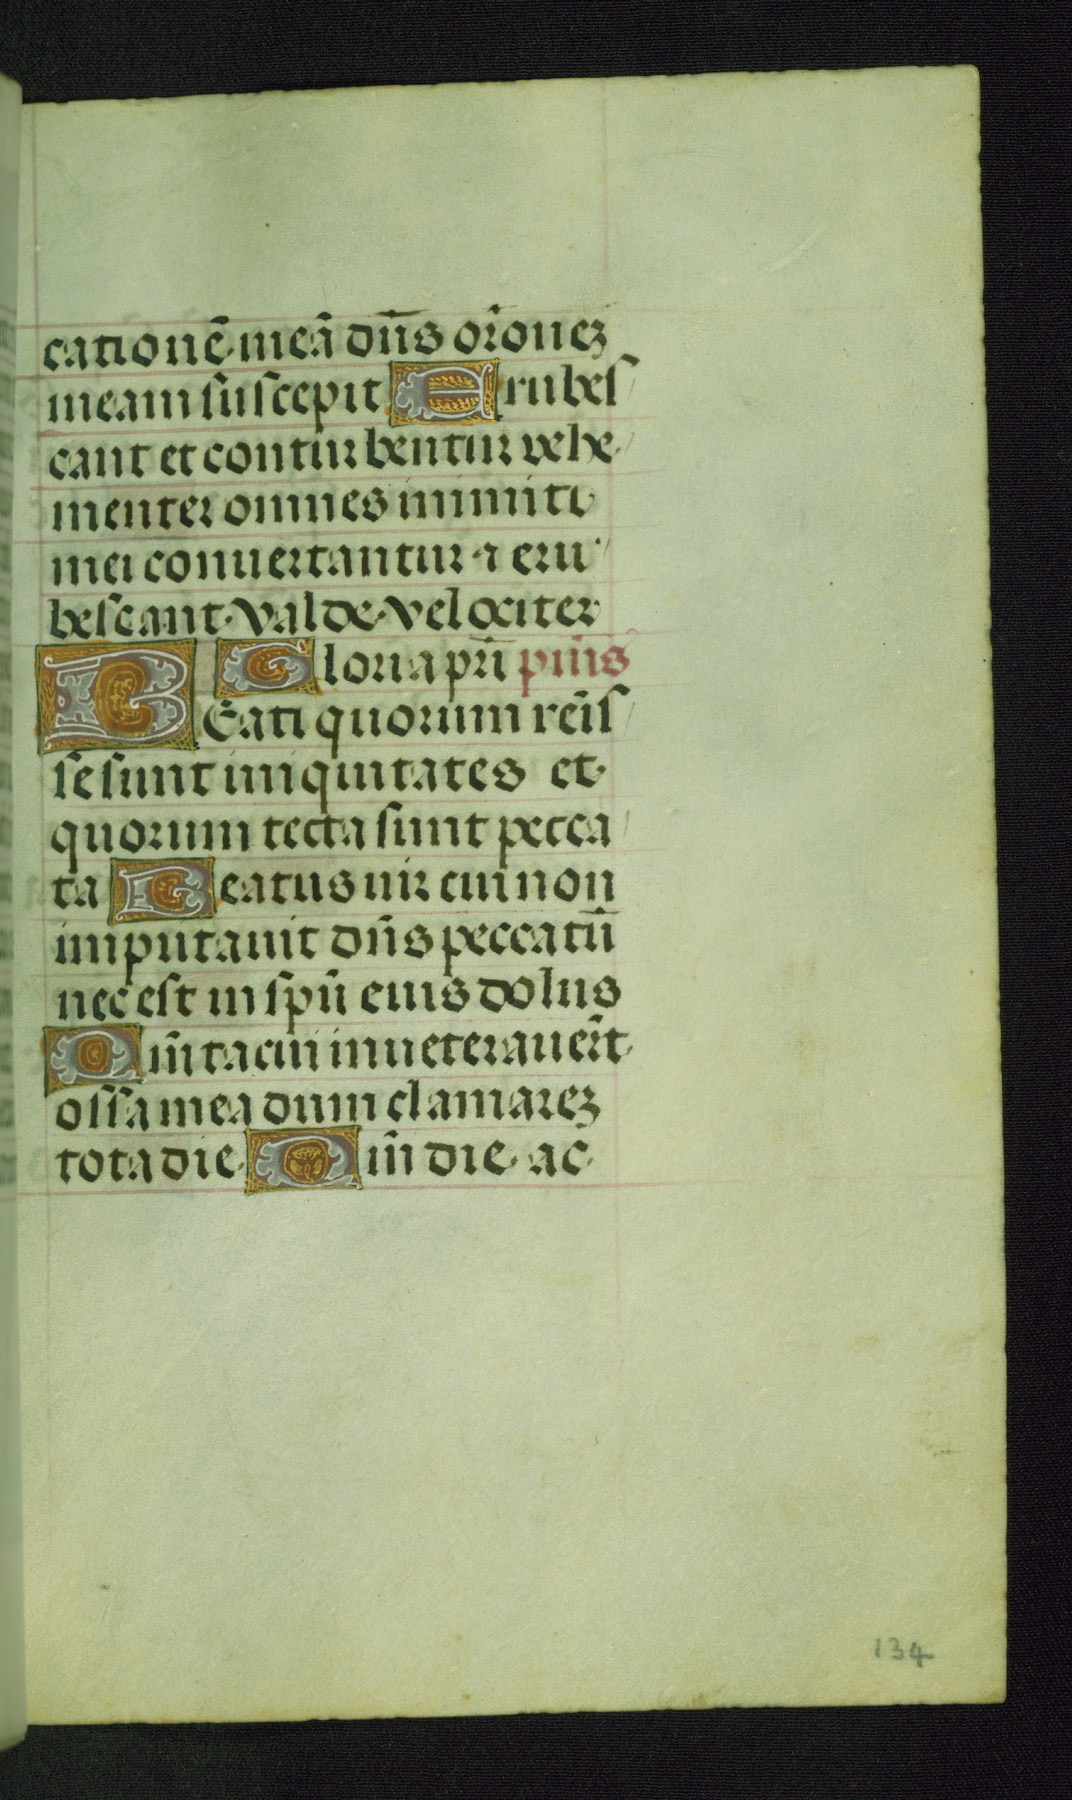 cationē meā dn̄s or̄oneꝫ
meam suscepit Erubes
cant et conturbentur vehe
menter omnes inimici
mei conuertantur ⁊ eru
bescant valde velociter
Gloria pr̄i pm̄s
BEati quorum reīs
se sunt iniquitates et
quorum tecta sunt pecca
ta Beatus uir cui non
imputauit dn̄s peccatū
nec est in spū eius dolus
Qm̄ tacui inueterauer̄t
ossa mea dum clamareꝫ
tota die Qm̄ die ac
134